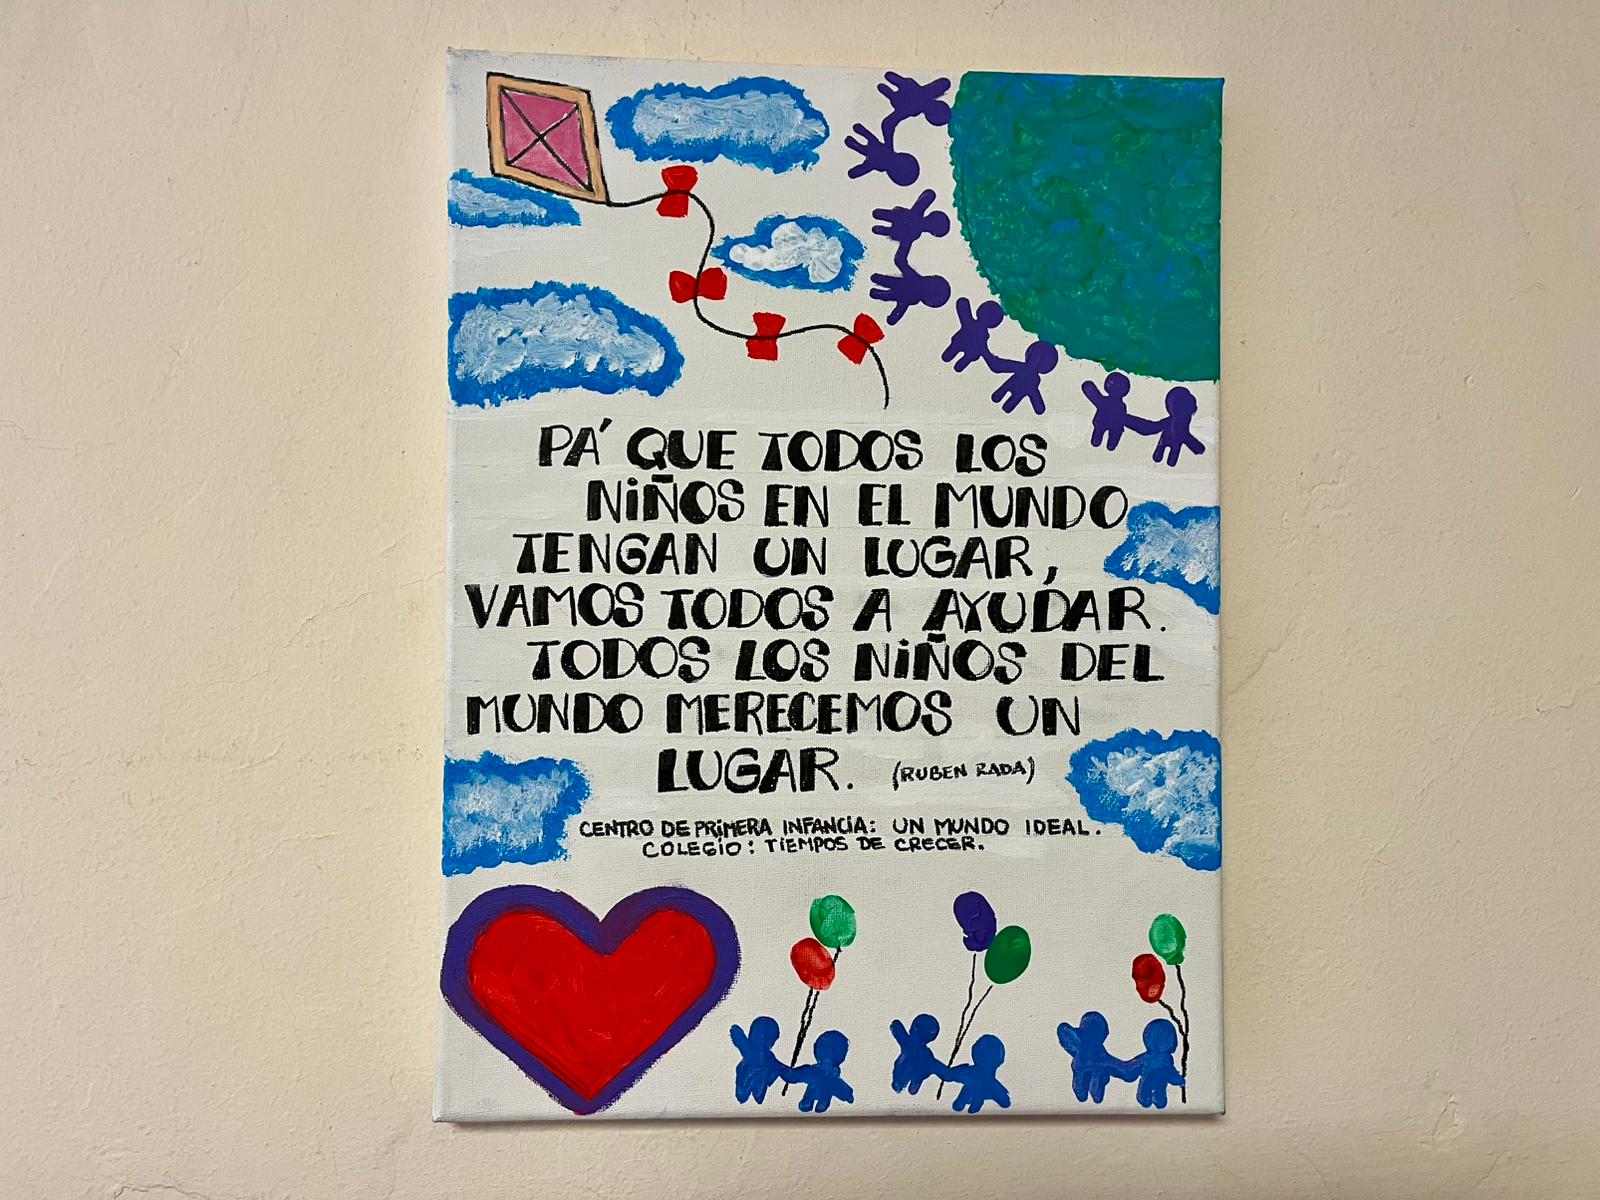 PA' QUE TODOS LOS
NIÑOS EN EL MUNDO
TENGAN UN LUGAR,
VAMOS TODOS A AYUDAR.
TODOS LOS NIÑOS DEL
MUNDO MERECEMOS UN
LUGAR. (RUBEN RADA)
CENTRO DE PRIMERA INFANCIA: UN MUNDO IDEAL.
COLEGIO: TIEMPOS DE CRECER.